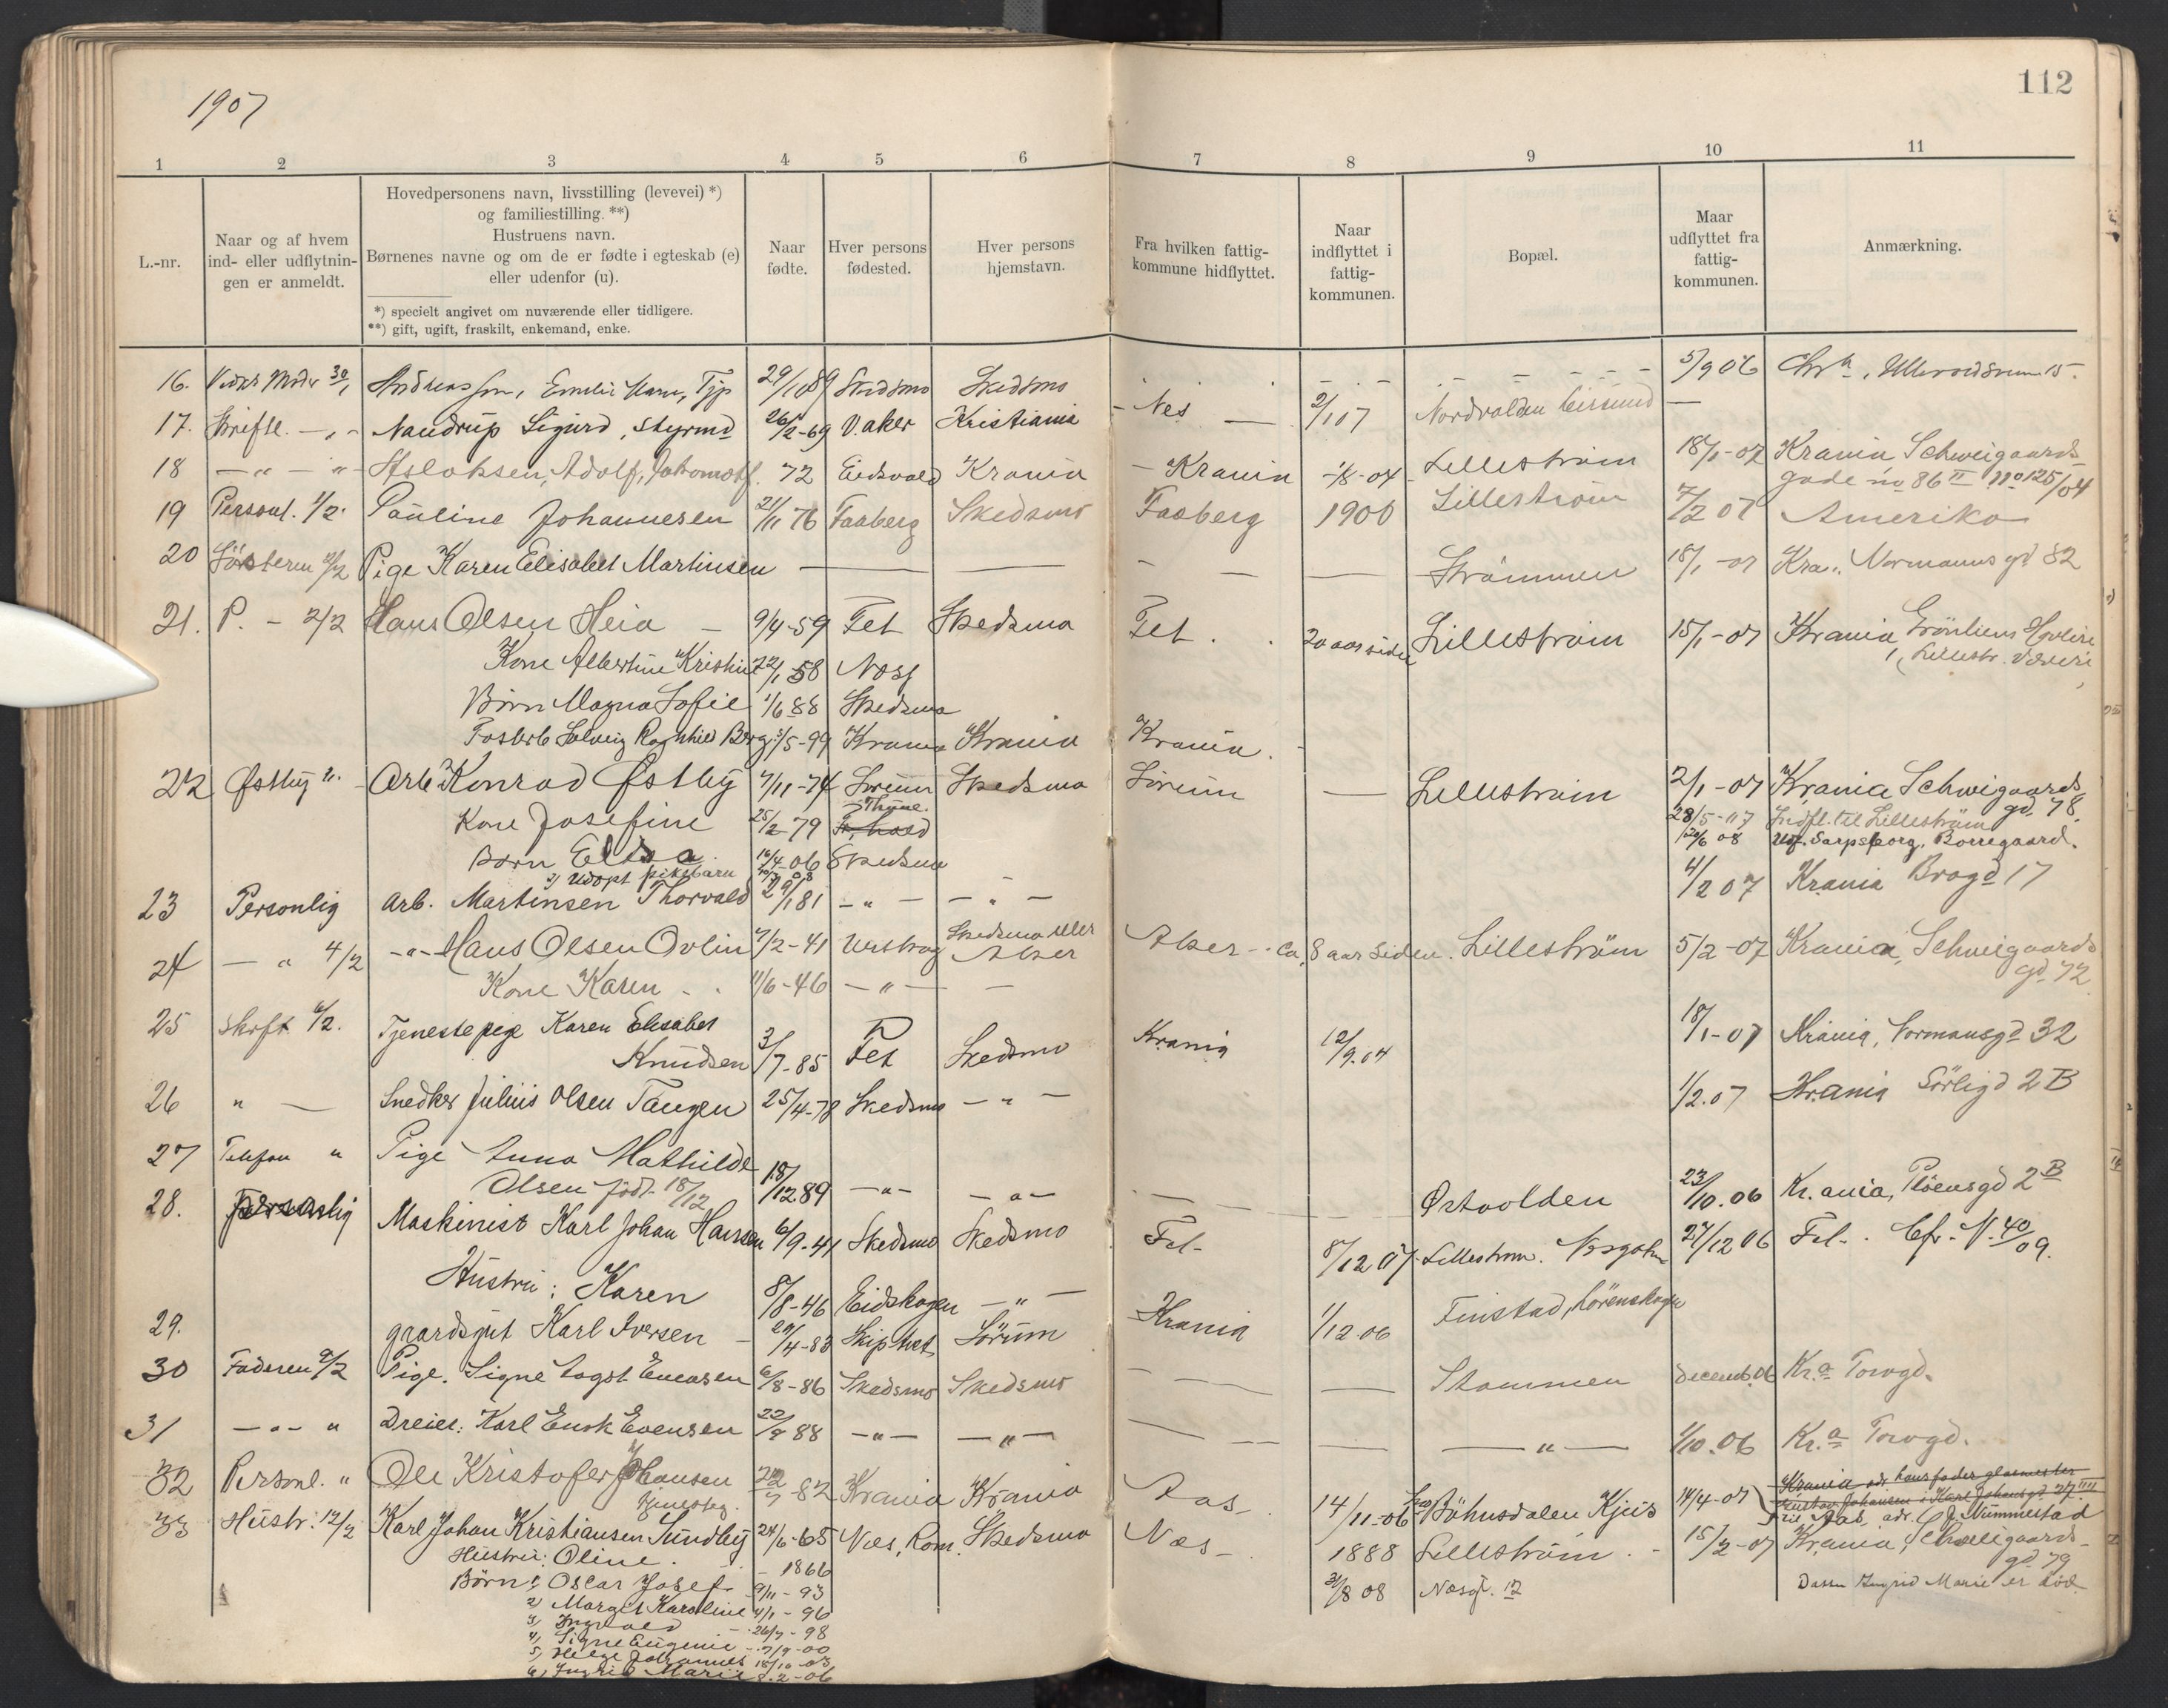 1907
112
1 2 3 4 5 6 7 8 9 10 11
L.-nr.
Naar og af hvem
ind- eller udflytnin-
gen er anmeldt.
Hovedpersonens navn, livsstilling (levevei) *)
og familiestilling. **)
Hustruens navn.
Børnenes navne og om de er fødte i egteskab (e)
eller udenfor (u).
*) specielt angivet om nuværende eller tidligere.
**) gift, ugift, fraskilt, enkemand, enke.
Naar
fødte.
Hver persons
fødested.
Hver persons
hjemstavn.
Fra hvilken fattig-
kommune hidflyttet.
Naar
indflyttet i
fattig-
kommunen.
Bopæl.
Maar
udflyttet fra
fattig-
kommunen.
Anmærkning.
16. 30/1 29/1 89 Skedsmo Skedsmo 5/9 06 15.
17. Skriftl. - " - Naudrup Sigurd, Styrmd 26/2-69 V. aker Kristiania - Nes — 2/1 07
18 — " — " Aslaksen, Adolf, 72 Eidsvold Krania - Krania -/8-04 Lillestrøm 18/1-07 Krania Schweigaards
gade no 86 II no 125/04
19 Personl. 1/2 Pauline Johannesen 21/11 76 Faaberg Skedsmo Faaberg 1900 Lillestrøm 7/2 07 Amerika
20 Pige Karen Elisabet Martinsen — — - — — Strømmen 18/1-07 Kra.. Normanns gd 32
21. P. - 2/2 Hans Olsen Heia - 9/4-59 Fet Skedsmo Fet . . 20 aar siden Lillestrøm 15/1-07 Krania Grønliens
Kone Albertine Kristine 22/1 58 Næs
Børn Magna Sofie 1/6 88 Skedsmo
Solveig Ragnhild Berg 3/5-99 Krania Krania Krania.
22 Østby Arb Konrad Østby 7/11-74 Sørum Skedsmo Sørum — Lillestrøm 2/1-07 Krania Schweigaards
gd. 78.
Kone Josefine 25/2-79 28/5-07 Indfl. til Lillestrøm
Børn Elsa 16/4-06 Skedsmo 20/6 08 Udf. Sarpsborg, Borregaard.
23 Personlig Arb. Martinsen Thorvald 29/1 81 - " — — " — 4/2 07 Krania Brogd 17
24 — " 4/2 - " - Hans Olsen Ovlin 7/2-41 Skedsmo eller
Aker Aker - ca. 8 aar siden. Lillestrøm 5/2-07 Krania, Schweigaards
gd. 72
Kone Karen - . 1/6-46 — " — —
25 Skrft 6/2. Tjenestepige Karen Elisabet
Knudsen 3/7-85 Fet Skedsmo Krania 12/9.04 18/1-07 Krania, Normansgd 32
26 " — Snedker Julius Olsen Tangen 25/4-78 Skedsmo — " — 1/2.07 Krania Sørligd 2B
27 Telefon " Pige Anna Mathilde
Olsen født 18/12 18/12 89 — " — — " — Østvolden 23/10.06 Kr.ania, Pløensgd 2B
28. Personlig Maskinist Karl Johan Hansen 6/9-41 Skedsmo Skedsmo Fet 8/12 07 Lillestrøm. 27/12 06 Fet.. Cfr. N. 40/09.
Hustru: Karen 8/8-46 Eidskogen — " —
29. gaardsgut Karl Iversen - 29/4-83 Skiptvet Sørum Krania 1/12 06 Finstad, Lørenskogen
30 Faderen 9/2 Pige. Signe Evensen 6/8-86 Skedsmo Skedsmo — Strømmen decemb. 06 Kr.a Torvgd.
31 — " — " Dreier: Karl Evensen 22/ 88 — " — — " — — " — 1/10.06 Kr.a Torvgd.
32 Personl. " Ole Kristofer Johansen
82 Krania Krania Aas 14/11-06 Bøhnsdalen Kjus 14/4-07 Krania adr. hans fader glarmester
Gustav Johansen Karl Johansgd 27 IIII
til Aas, adr. Nummestad
33 Hustr. 12/2 Karl Johan Kristiansen Sundby 24/6-65 Næs, Rom. Skedsmo Næs - 1888 Lillestrøm. - 15/2-07 Krania, Schweigaards-
gd. 79
Hustru: Oline. - 1866
Børn: 1) Oscar Josef 9/11-93 31/8 08 Næsgt. 12 Ingrid Marie er død
2) Margit Karoline 4/1-96
3) Ingvald - 26/7-98
4) Signe Eugenie - 7/9-00
5) Helge Johannes 15/10-03
6) Ingrid Marie 8.2-06